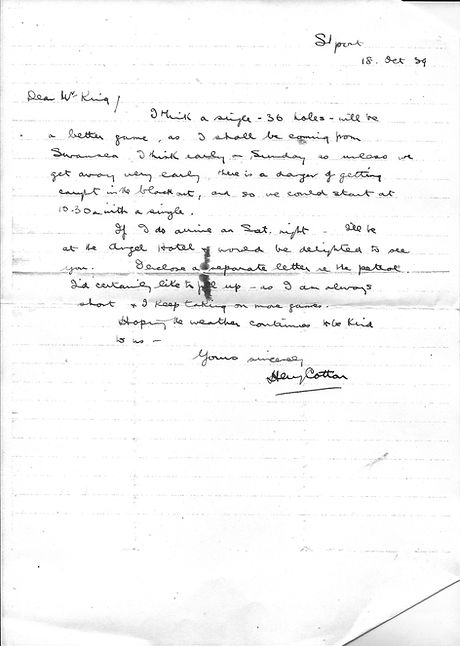 S'port
18. Oct 39
Dear Mr King/
I think a single - 36 holes - will be
a better game, as I shall be coming from
Swansea I think early on Sunday so unless we
get away very early there is a danger of getting
caught in the blackout, and so we could start at
10.30 am with a single.
If I do arrive on Sat. night - I'll be
at the Angel Hotel & would be delighted to see
you. I enclose a separate letter re the petrol.
I'd certainly like to fill up - as I am always
short & I keep taking on more games.
Hoping the weather continues to be kind
to us -
Yours sincerely
Henry Cotton